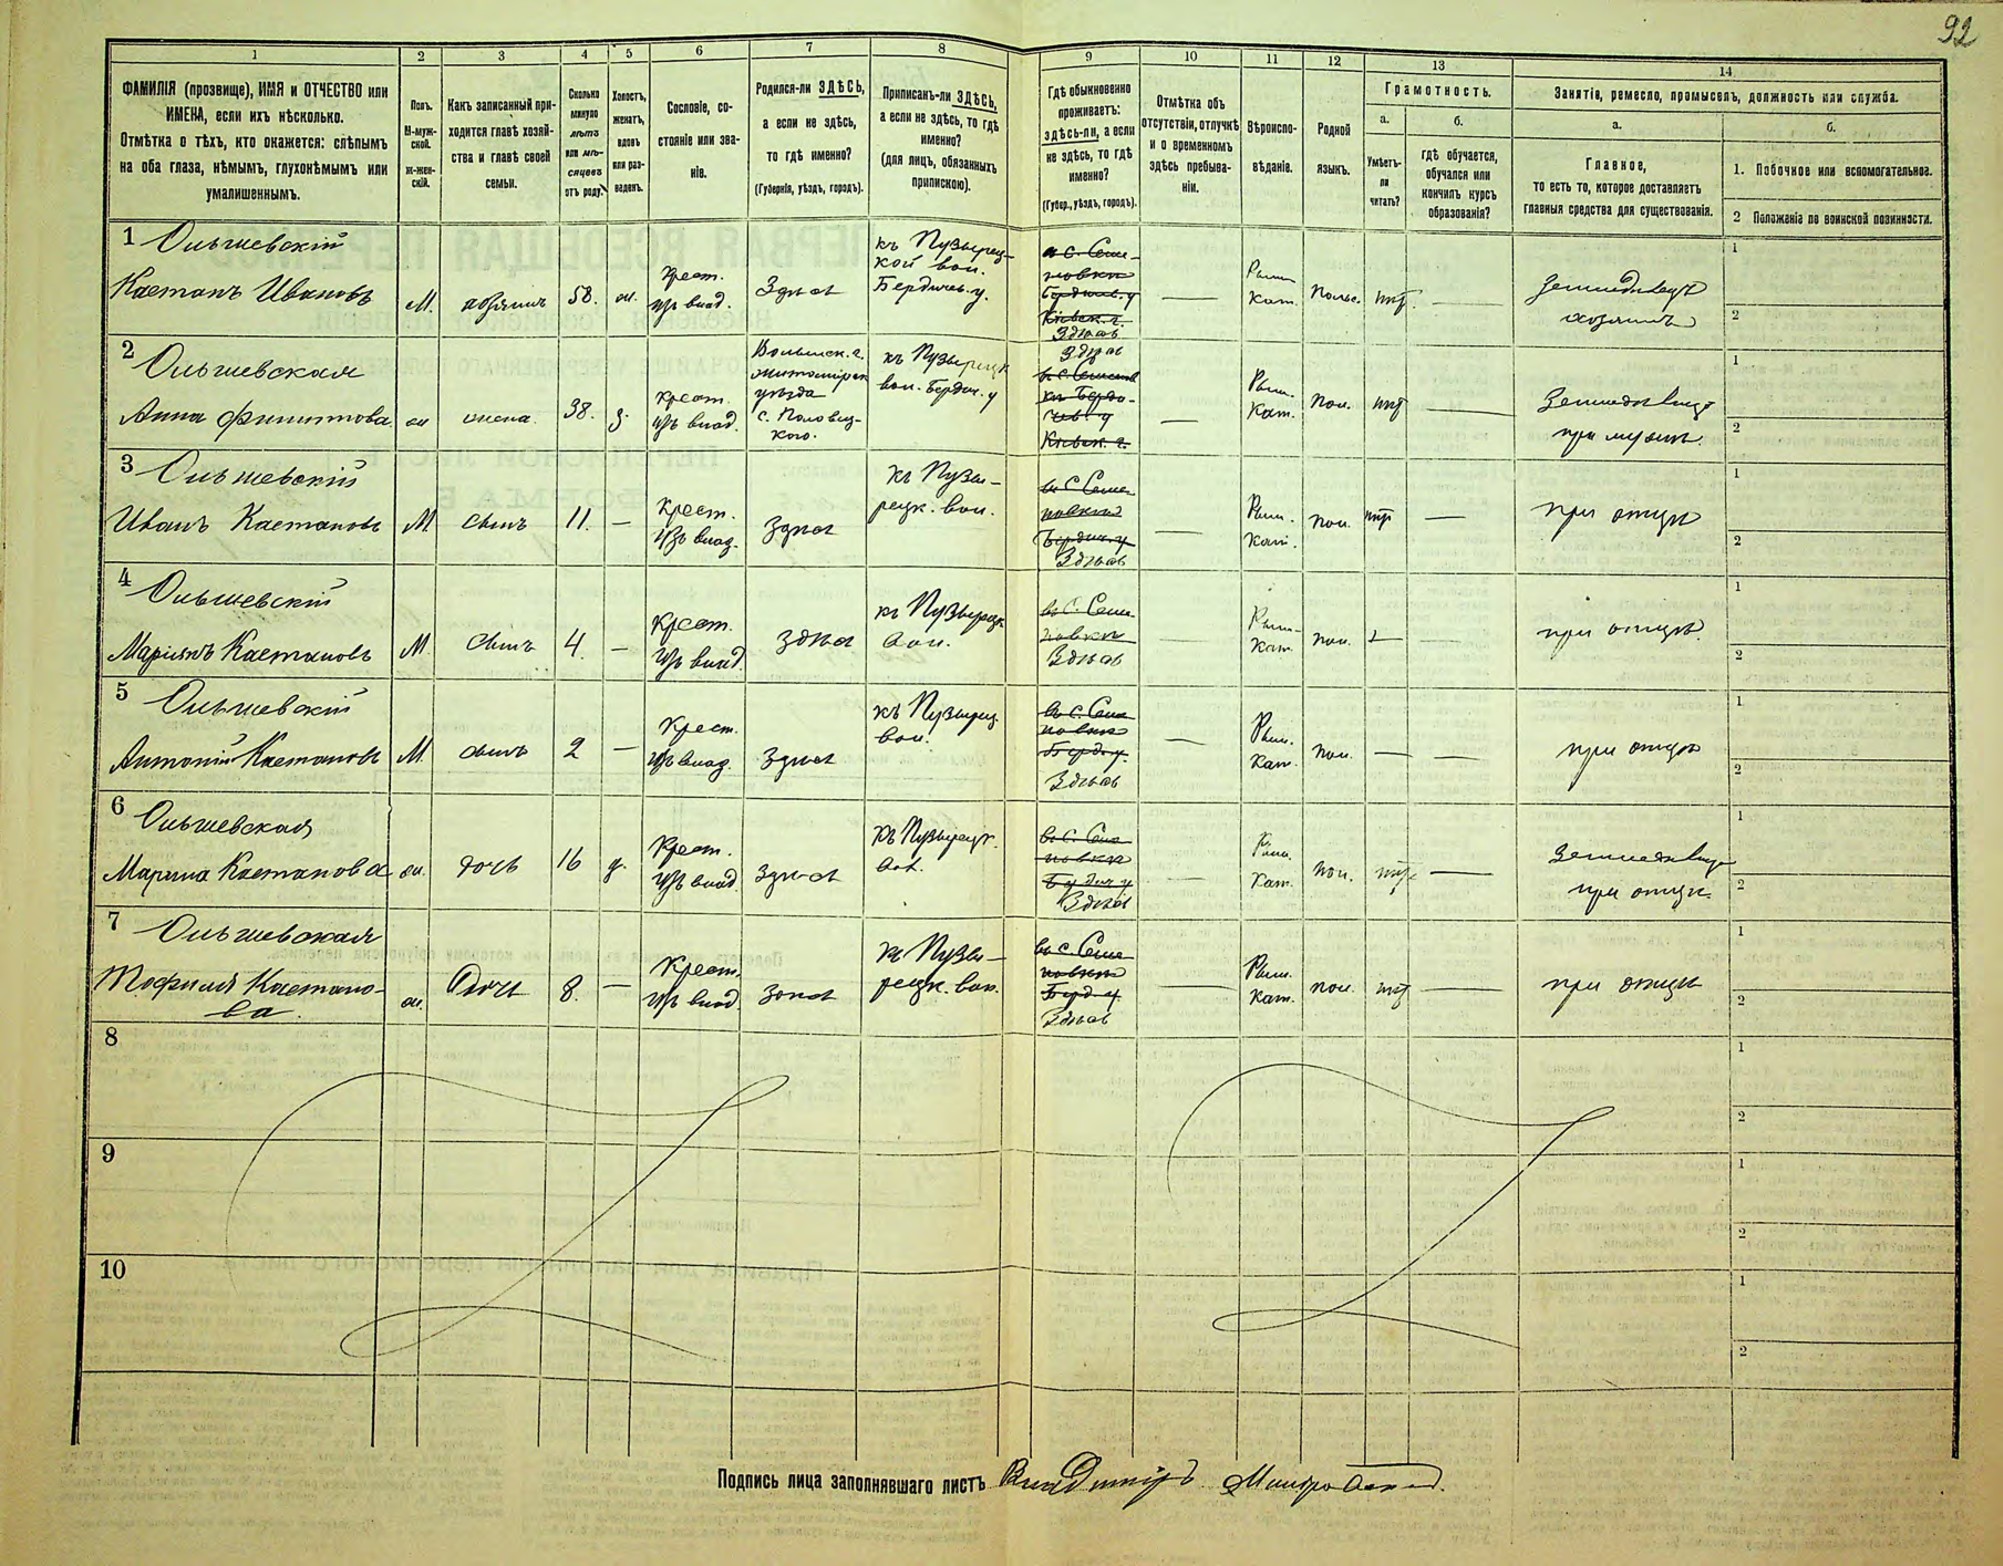 92
1 2 3 4 5 6 7 8 9 10 11 12 13 14
ФАМИЛІЯ (прозвище), ИМЯ и ОТЧЕСТВО или
ИМЕНА, если ихъ нѣсколько.
Отмѣтка о тѣхъ, кто окажется: слѣпымъ
на оба глаза, нѣмымъ, глухонѣмымъ или
умалишеннымъ.
Полъ.
М-муж-
ской.
ж-жен-
скій.
Какъ записанный при-
ходится главѣ хозяй-
ства и главѣ своей
семьи.
Сколько
минуло
лѣтъ
или мѣ-
сяцевъ
отъ роду.
Холостъ,
женатъ,
вдовъ
или раз-
веденъ.
Сословіе, со-
стояніе или зва-
ніе.
Родился-ли ЗДѢСЬ,
а если не здѣсь,
то гдѣ именно?
(Губернія, уѣздъ, городъ).
Приписанъ-ли ЗДѢСЬ,
а если не здѣсь, то гдѣ
именно?
(для лицъ, обязанныхъ
припискою).
Гдѣ обыкновенно
проживаетъ:
здѣсь-ли, а если
не здѣсь, то гдѣ
именно?
(Губер., уѣздъ, городъ).
Отмѣтка объ
отсутствіи, отлучкѣ
и о временномъ
здѣсь пребыва-
ніи.
Вѣроиспо-
вѣданіе.
Родной
языкъ.
Грамотность.
а.
Умѣетъ-
ли
читать?
б.
гдѣ обучается,
обучался или
кончилъ курсъ
образованія?
Занятіе, ремесло, промыселъ, должность или служба.
а.
Главное,
то есть то, которое доставляетъ
главныя средства для существованія.
б.
1. Побочное или вспомогательное.
2 Положеніе по воинской повинности.
1 Ольшевскій
Каетанъ Ивановъ
М. хозяинъ 58. ж.
Крест.
изъ влад.
Здѣсь
къ Пузырец-
кой вол.
Бердичев. у.
Здѣсь
—
Рим.
Кат.
Польс.
—
Земледѣлецъ
хозяинъ
1
2
2 Ольшевская
Анна Филиппова
ж жена 38. з.
Крест.
изъ влад.
Волынск. г.
житомірск
уѣзда
с. Половец-
кого.
къ Пузырецк
вол. Бердич. у
Здѣсь
—
Рим.
Кат.
Пол.
—
при мужѣ
1
2
3 Ольшевскій
Иванъ Каетановъ
М сынъ 11. —
Крест.
Изъ влад.
Здѣсь
къ Пузы-
рецк. вол.
Здѣсь
—
Рим.
Кат.
пол.
—
при отцѣ
1
2
4 Ольшевскій
Маріянъ Каетановъ
М сынъ 4. —
Крест.
Изъ влад.
Здѣсь
къ Пузырецк
вол.
въ с. Семе
новки
Здѣсь
—
Рим.
Кат.
пол.
—
при отцѣ.
1
2
5 Ольшевскій
Антоній Каетановъ
М. сынъ 2 —
Крест.
Изъ влад.
Здѣсь
къ Пузырец.
вол.
Здѣсь
—
Рим.
Кат.
пол.
—
—
при отцѣ
1
2
6 Ольшевская
Марина Каетанова
ж. дочь 16 д.
Крест.
Изъ влад.
Здѣсь
къ Пузырецк.
вол.
Здѣсь
—
Рим.
Кат.
пол.
—
при отцѣ.
1
2
7 Ольшевская
Теофиля Каетано-
ва.
ж. Дочь 8. —
Крест.
Изъ влад
здѣсь
къ Пузы-
рецк. вол.
Здѣсь
—
Рим.
Кат.
пол.
—
при отцѣ
1
2
8
1
2
9
1
2
10
1
2
Подпись лица заполнявшаго листъ Владиміръ